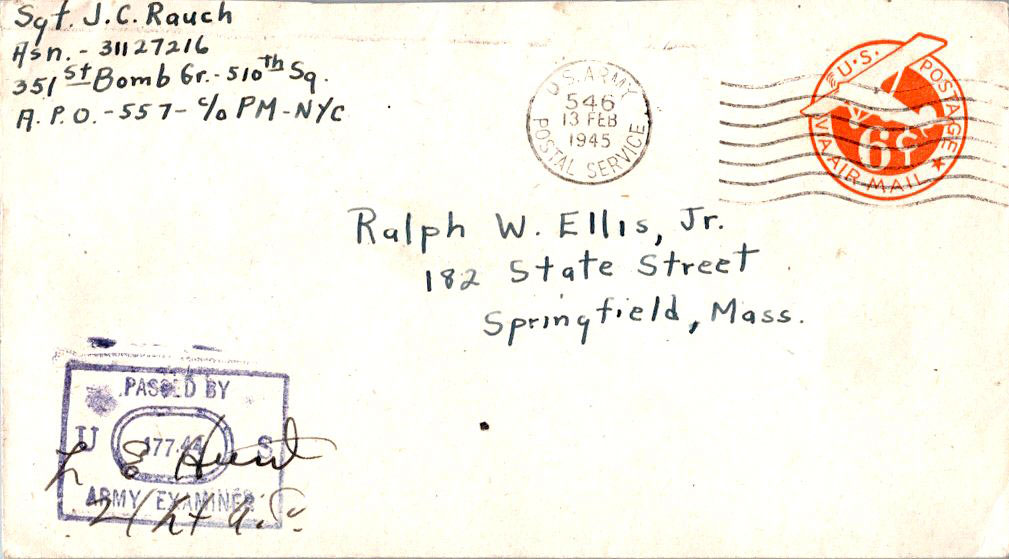 Sgt. J.C. Rauch
Asn. - 31127216
351st Bomb Gr. - 510th Sq.
A.P.O. - 557 - c/o PM - NYC
U.S. ARMY
546
13 FEB
1945
POSTAL SERVICE
U.S. POSTAGE
6¢
VIA AIR MAIL
Ralph W. Ellis, Jr.
182 State Street
Springfield, Mass.
PASSED BY
U S
ARMY EXAMINER
L E Hunt